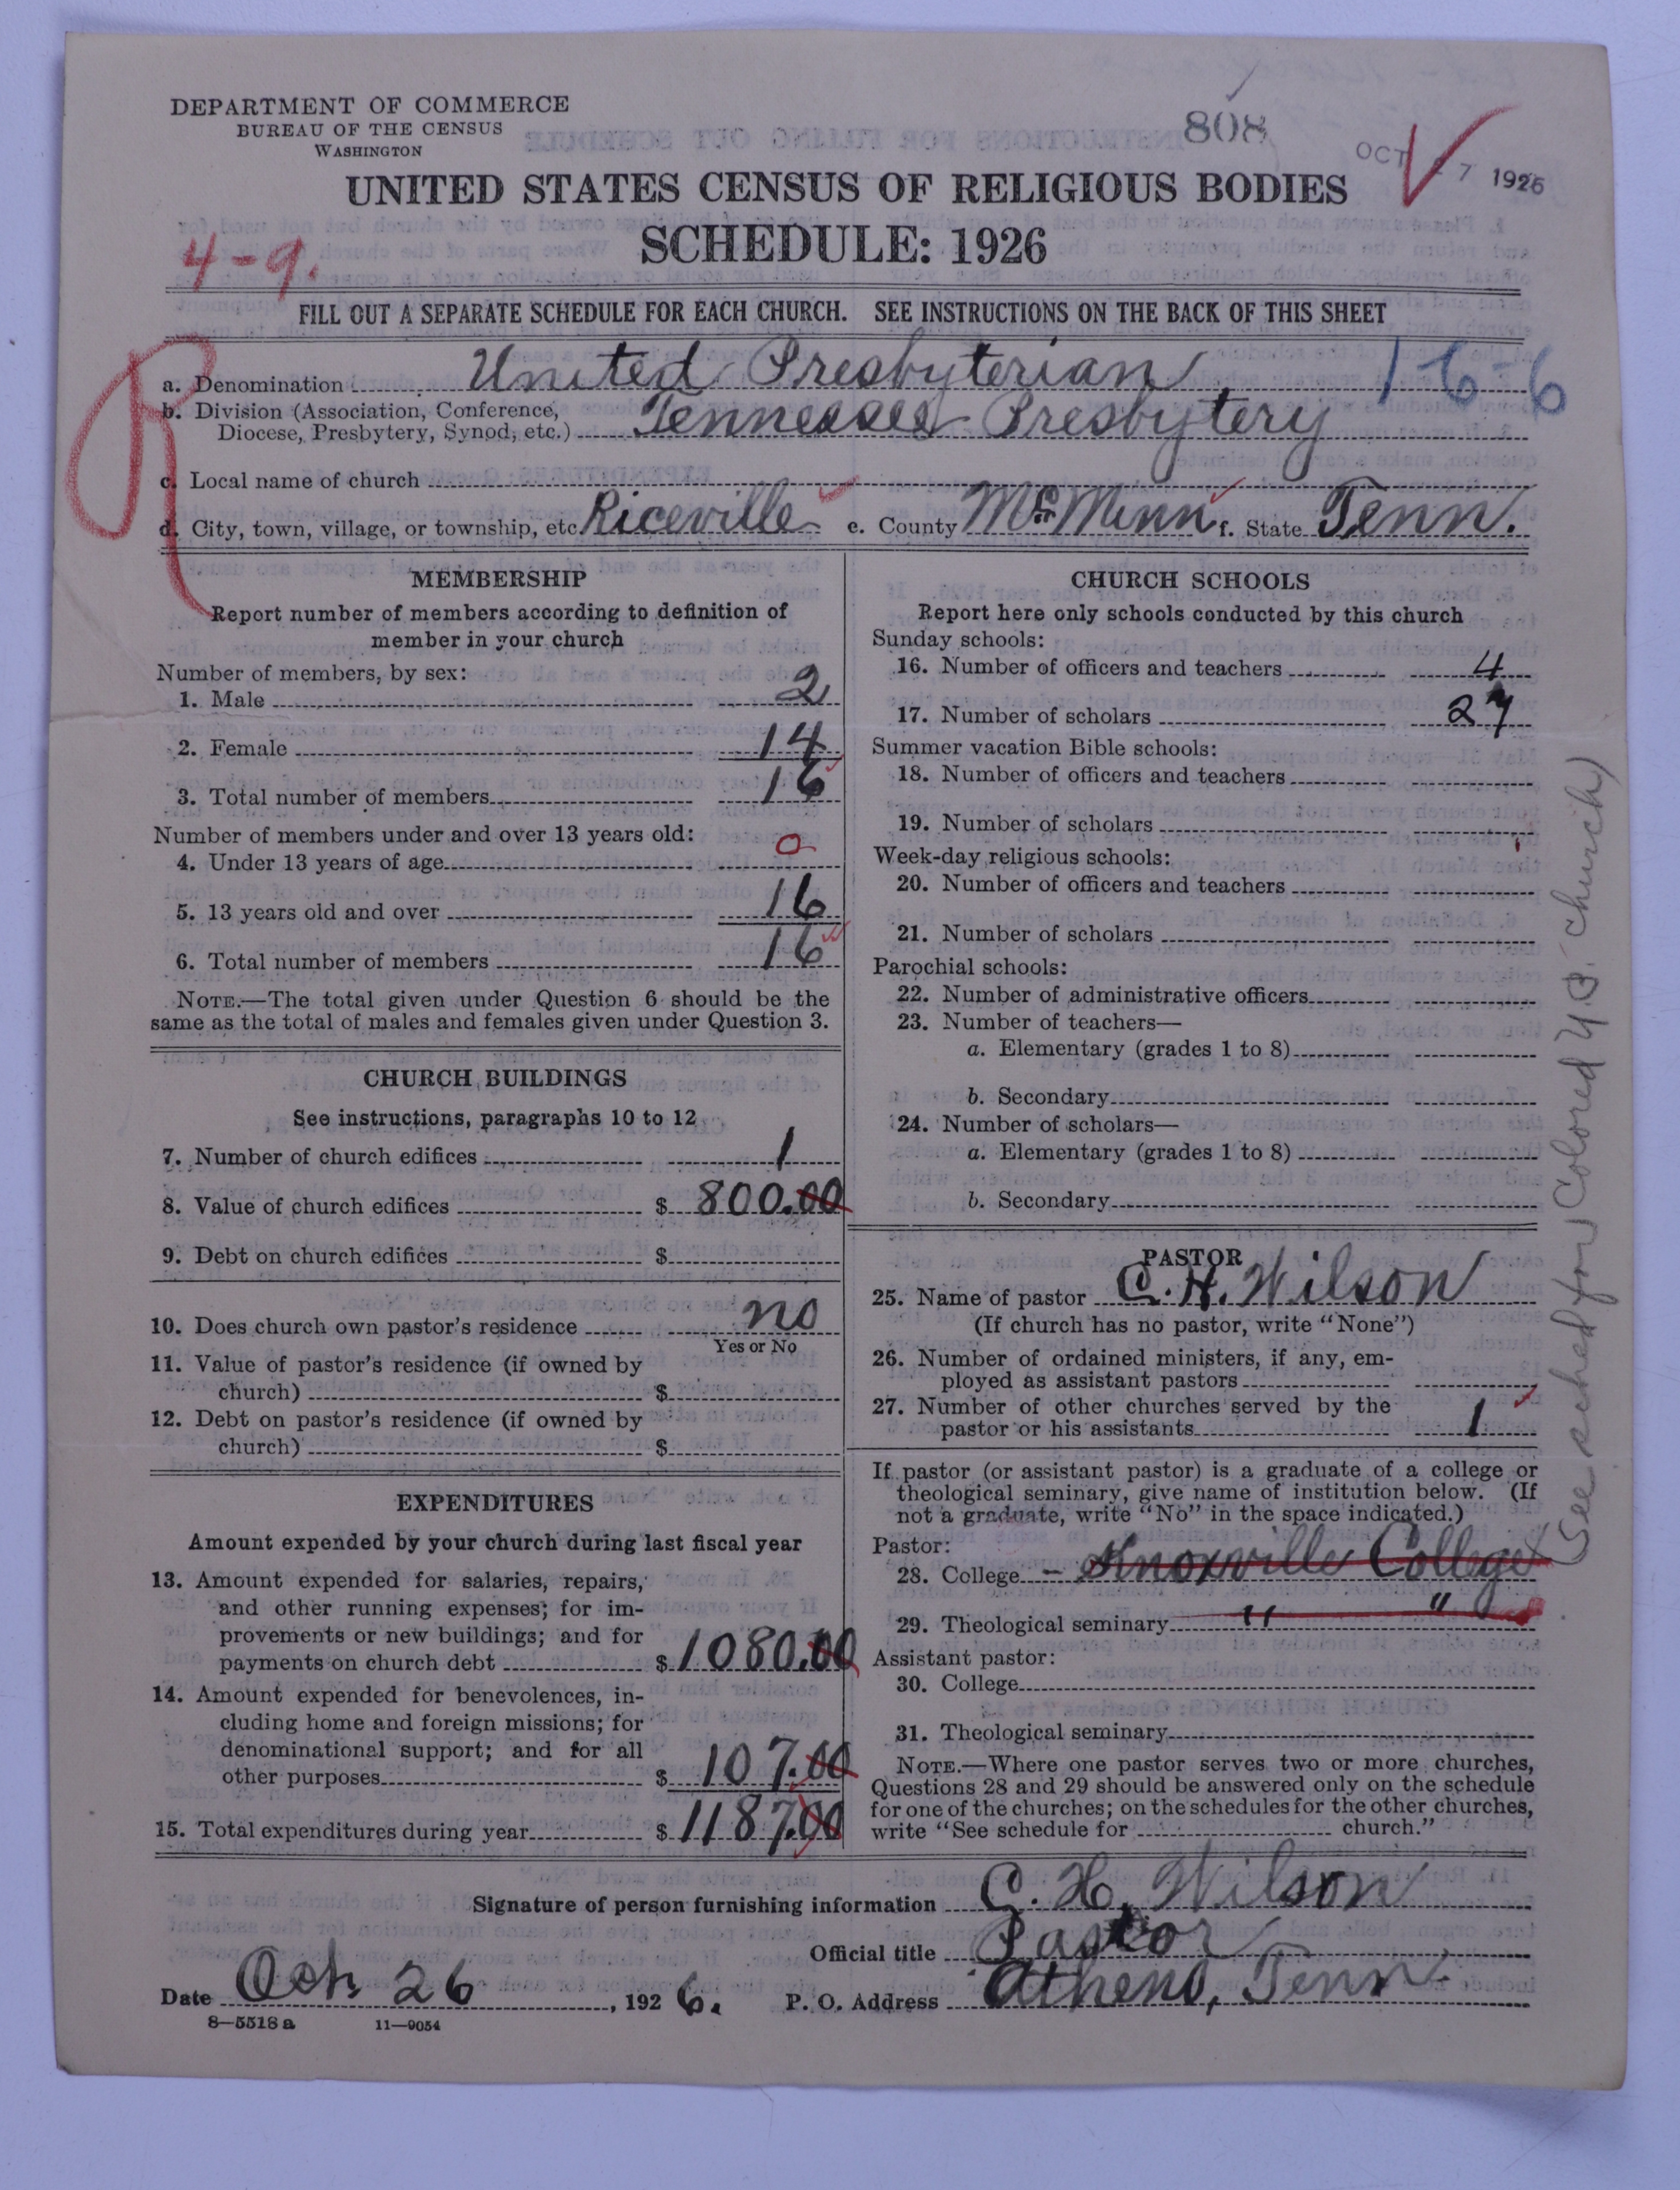 DEPARTMENT OF COMMERCE
BUREAU OF THE CENSUS
WASHINGTON
808
OCT 27 1926
UNITED STATES CENSUS OF RELIGIOUS BODIES
SCHEDULE: 1926
4-9.
FILL OUT A SEPARATE SCHEDULE FOR EACH CHURCH. SEE INSTRUCTIONS ON THE BACK OF THIS SHEET
R
a. Denomination United Presbyterian 1-6-6
b. Division (Association, Conference,
Diocese, Presbytery, Synod, etc.) Tennessee Presbytery
c. Local name of church
d. City, town, village, or township, etc. Riceville e. County McMinn f. State Tenn.
MEMBERSHIP
Report number of members according to definition of
member in your church
Number of members, by sex:
1. Male 2
2. Female 14
3. Total number of members 16
Number of members under and over 13 years old:
4. Under 13 years of age 0
5. 13 years old and over 16
6. Total number of members 16
NOTE.—The total given under Question 6 should be the
same as the total of males and females given under Question 3.
CHURCH BUILDINGS
See instructions, paragraphs 10 to 12
7. Number of church edifices 1
8. Value of church edifices $ 800.00
9. Debt on church edifices $
10. Does church own pastor's residence no
Yes or No
11. Value of pastor's residence (if owned by
church) $
12. Debt on pastor's residence (if owned by
church) $
EXPENDITURES
Amount expended by your church during last fiscal year
13. Amount expended for salaries, repairs,
and other running expenses; for im-
provements or new buildings; and for
payments on church debt $ 1080.00
14. Amount expended for benevolences, in-
cluding home and foreign missions; for
denominational support; and for all
other purposes $ 107.00
15. Total expenditures during year $ 1187.00
CHURCH SCHOOLS
Report here only schools conducted by this church
Sunday schools:
16. Number of officers and teachers 4
17. Number of scholars 27
Summer vacation Bible schools:
18. Number of officers and teachers
19. Number of scholars
Week-day religious schools:
20. Number of officers and teachers
21. Number of scholars
Parochial schools:
22. Number of administrative officers
23. Number of teachers—
a. Elementary (grades 1 to 8)
b. Secondary
24. Number of scholars—
a. Elementary (grades 1 to 8)
b. Secondary
PASTOR
25. Name of pastor C. H. Wilson
(If church has no pastor, write "None")
26. Number of ordained ministers, if any, em-
ployed as assistant pastors
27. Number of other churches served by the
pastor or his assistants 1
If pastor (or assistant pastor) is a graduate of a college or
theological seminary, give name of institution below. (If
not a graduate, write "No" in the space indicated.)
Pastor:
28. College - Knoxville College
29. Theological seminary " "
Assistant pastor:
30. College
31. Theological seminary
NOTE.—Where one pastor serves two or more churches,
Questions 28 and 29 should be answered only on the schedule
for one of the churches; on the schedules for the other churches,
write "See schedule for church."
(See sched for Colored U.P. church)
Signature of person furnishing information C. H. Wilson
Official title Pastor
Date Oct. 26, 1926. P. O. Address Athens, Tenn.
8—5518 a 11—9054